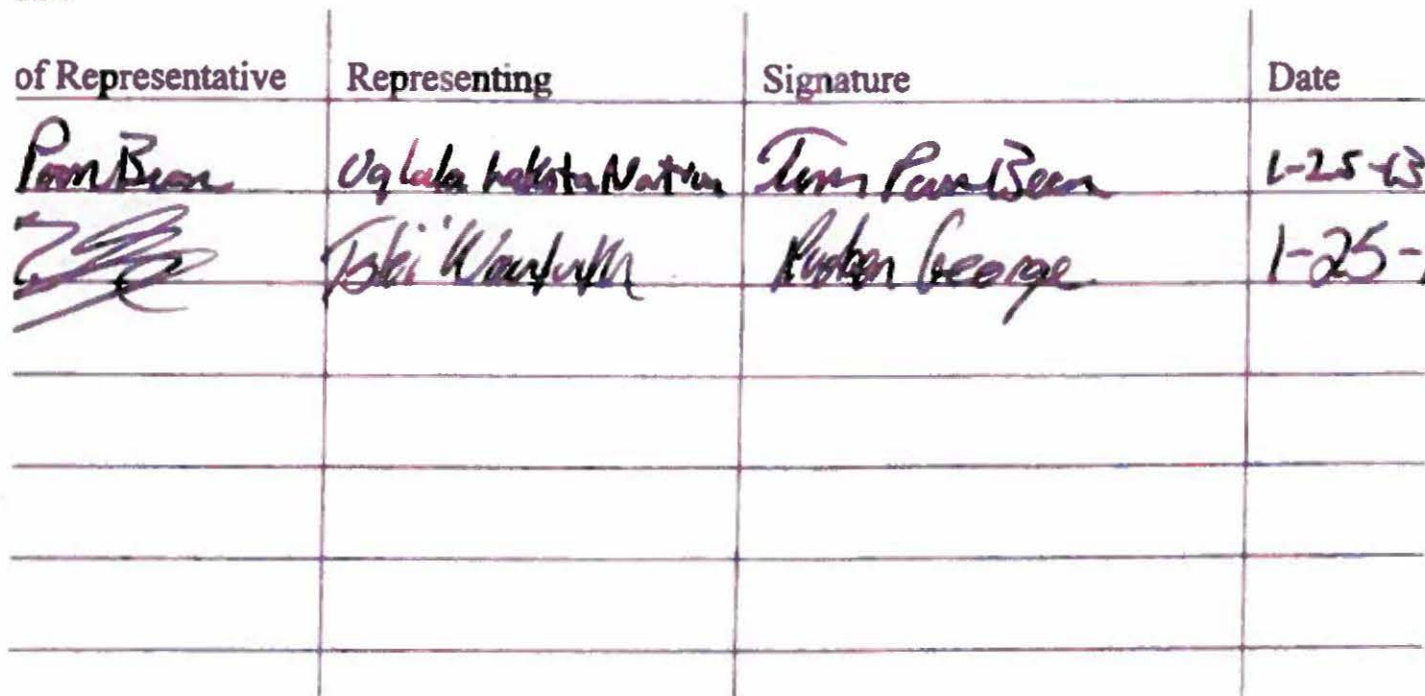 of Representative Representing Signature Date
Poor Bear Oglala Lakota Nation Tom Poor Bear 1-25-13
Tsleil Waututh Rueben George 1-25-